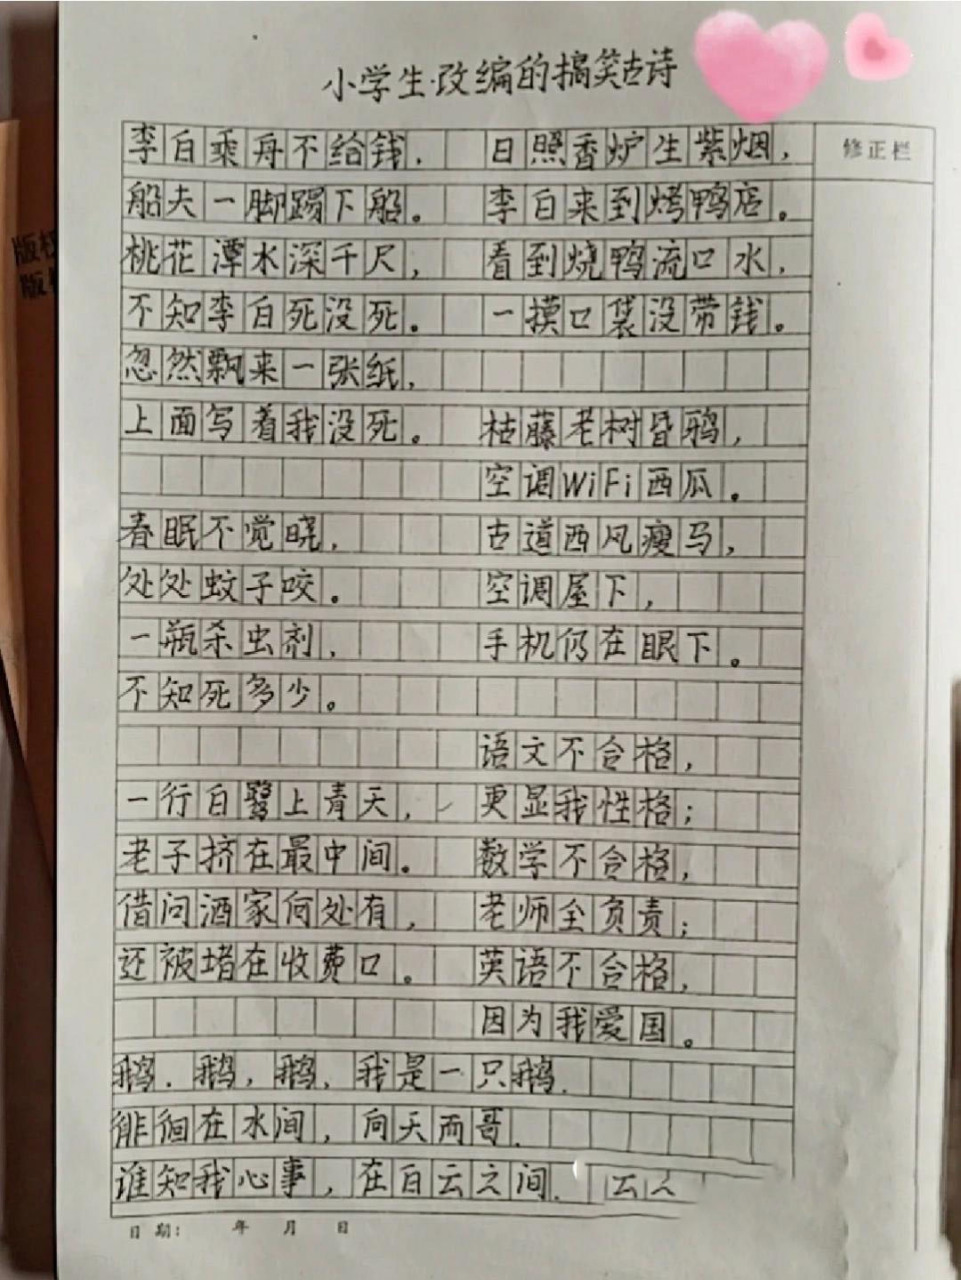 小学生·改编的搞笑古诗
修正栏
版权
版权
李白乘舟不给钱，
船夫一脚蹋下船。
桃花潭水深千尺，
不知李白死没死。
忽然飘来一张纸，
上面写着我没死。
春眠不觉晓，
处处蚊子咬。
一瓶杀虫剂，
不知死多少。
一行白鹭上青天，
老子挤在最中间。
借问酒家何处有，
还被堵在收费口。
鹅．鹅，鹅，我是一只鹅．
徘徊在水间，向天而哥．
谁知我心事，在白云之间．
日照香炉生紫烟，
李白来到烤鸭店。
看到烧鸭流口水，
一摸口袋没带钱。
枯藤老树昏鸦，
空调WiFi西瓜。
古道西风瘦马，
空调屋下，
手机仍在眼下。
语文不合格，
更显我性格；
数学不合格，
老师全负责；
英语不合格，
因为我爱国。
日期： 年 月 日